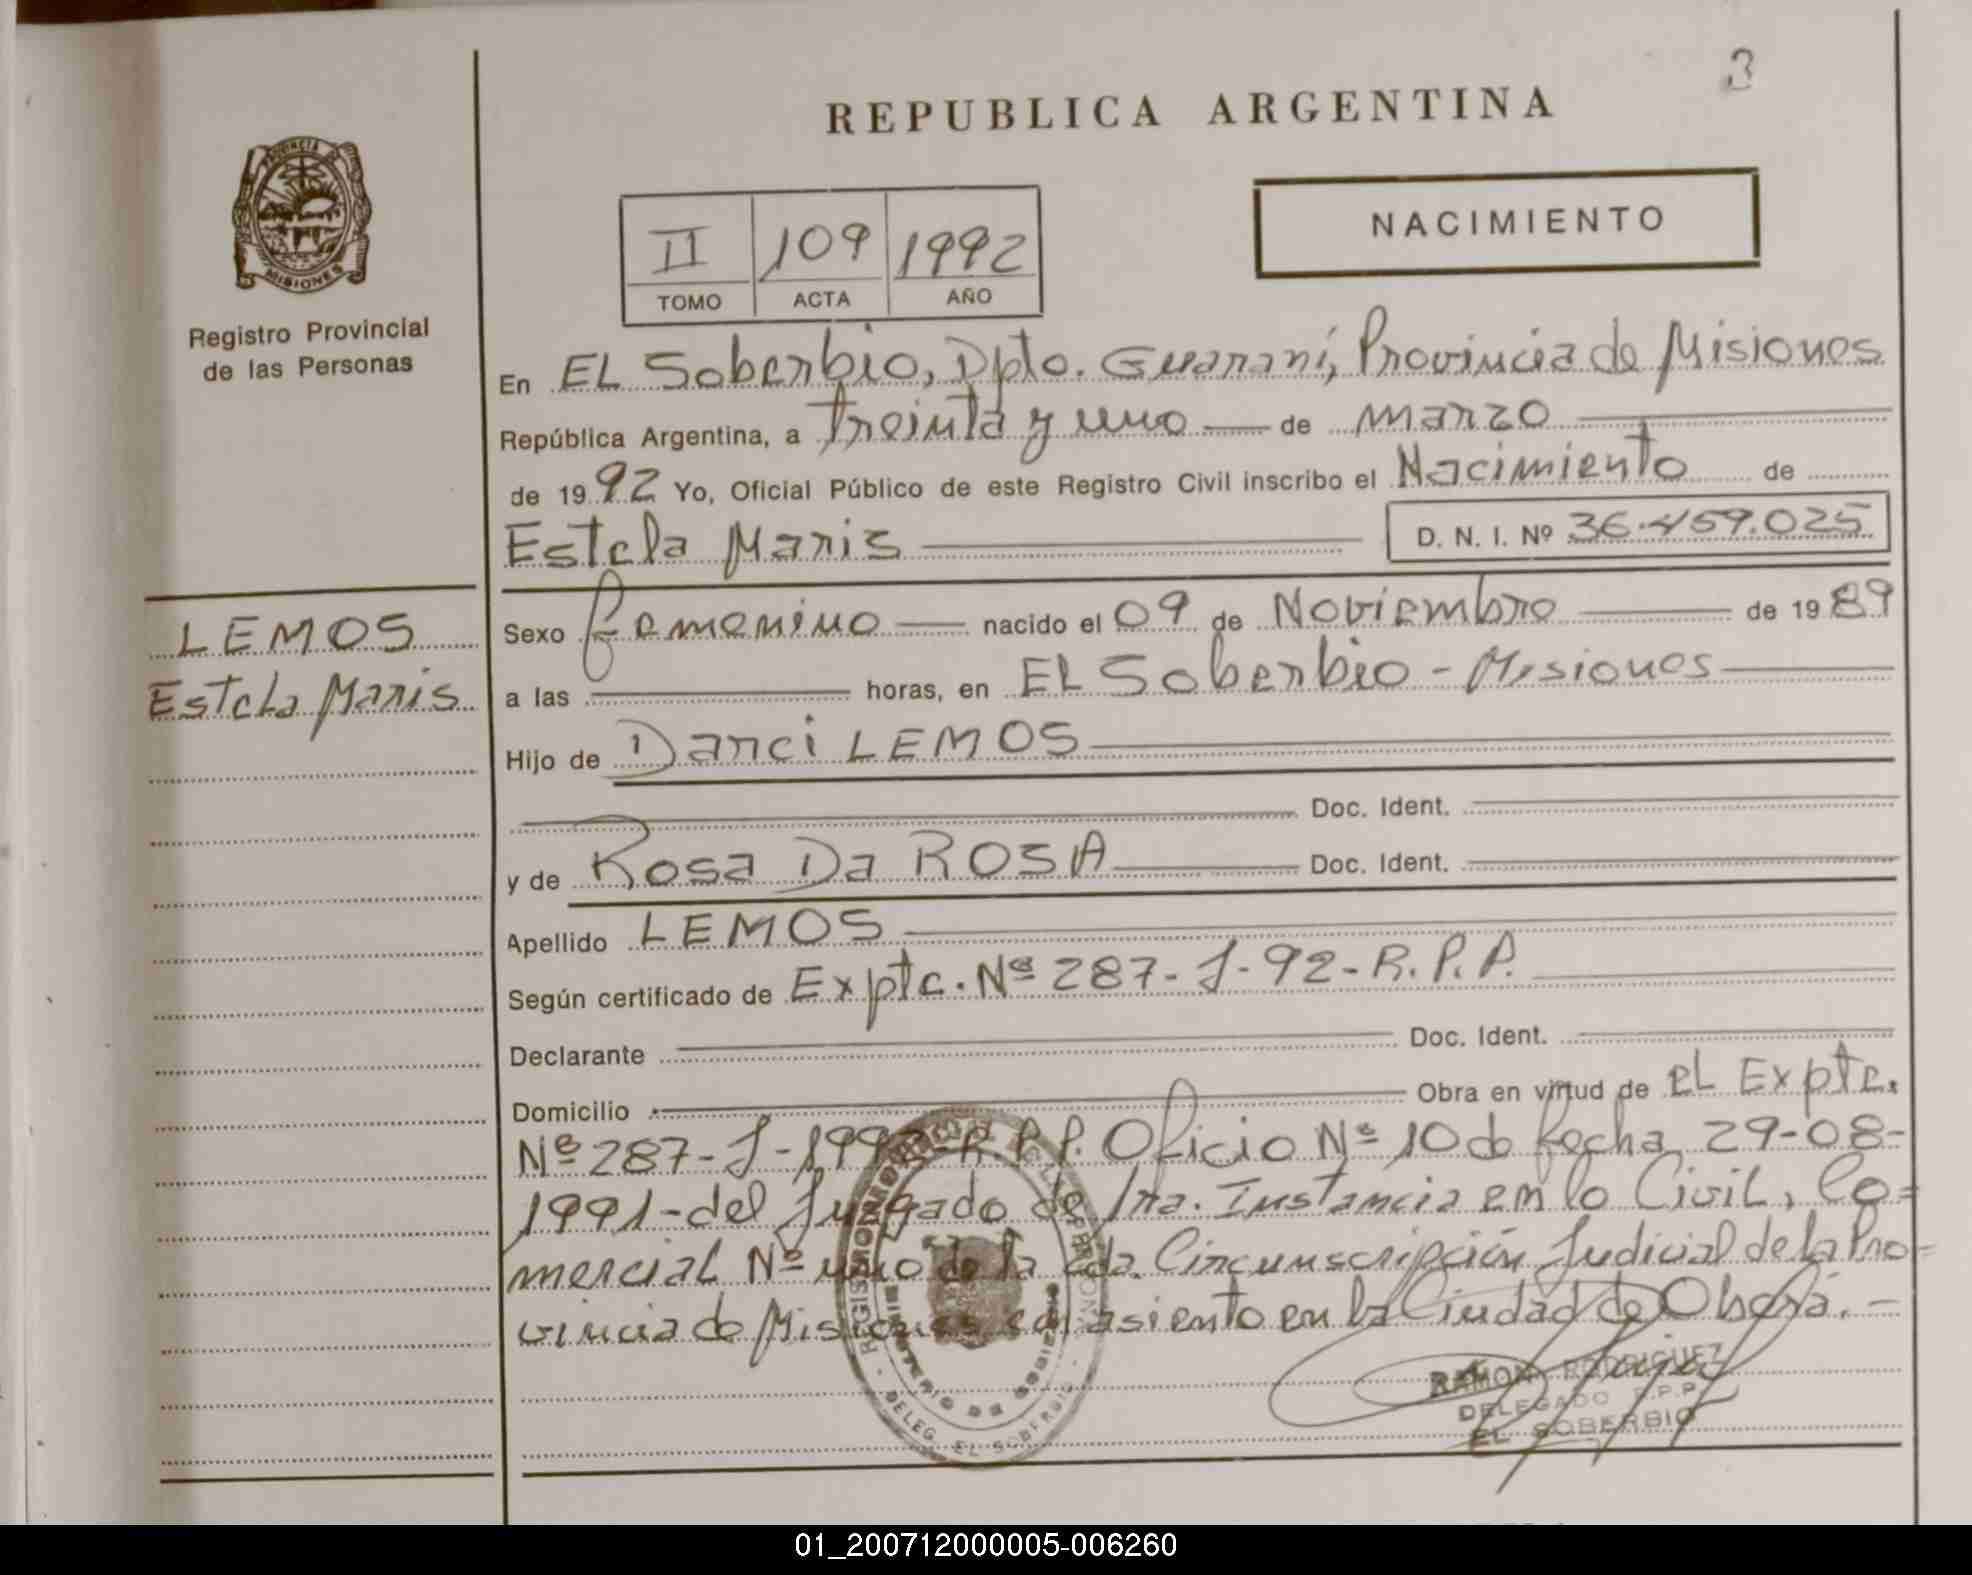 3
REPUBLICA ARGENTINA
PROVINCIA DE
MISIONES
Registro Provincial
de las Personas
NACIMIENTO
II 109 1992
TOMO ACTA AÑO
En EL Soberbio, Dpto. Guaraní, Provincia de Misiones
República Argentina, a treinta y uno de marzo
de 1992 Yo, Oficial Público de este Registro Civil inscribo el Nacimiento de
Estela Maris D. N. I. Nº 36.459.025
LEMOS
Estela Maris
Sexo femenino nacido el 09 de Noviembre de 1989
a las horas, en EL Soberbio - Misiones
Hijo de Darci LEMOS
Doc. Ident.
y de Rosa Da ROSA Doc. Ident.
Apellido LEMOS
Según certificado de Expte. Nº 287-J-92-R.P.P.
Declarante Doc. Ident.
Domicilio Obra en virtud de el Expte.
Nº 287-J-1992-R.P.P. Oficio Nº 10 de fecha 29-08-
1991-del Juzgado de 1ra. Instancia en lo Civil, Co=
mercial Nº uno de la 2da. Circunscripción Judicial de la Pro=
vincia de Misiones con asiento en la Ciudad de Oberá.-
DELEG. EL SOBERBIO
RAMON RODRIGUEZ
DELEGADO R.P.P.
EL SOBERBIO
01_200712000005-006260